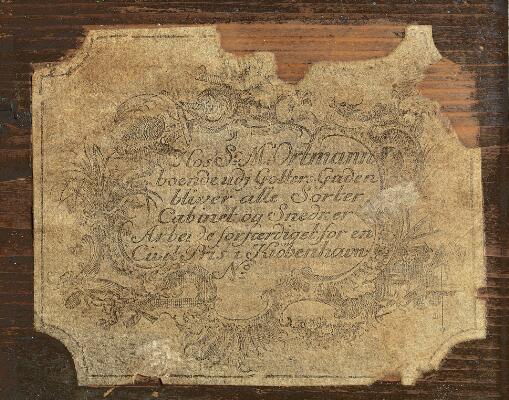 Hos Sr. M. Ortmann
boende udj Gotter Gaden
bliver alle Sorter
Cabinet og Snedker
Arbeide forfærdiget for en
Civil Pris i Kiöbenhavn
No